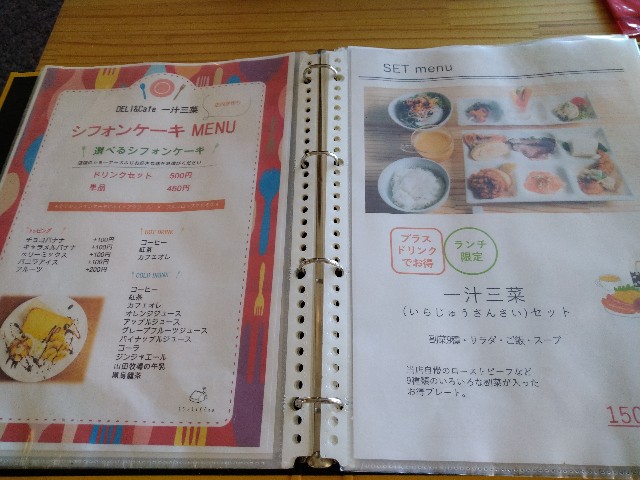 DELI&Cafe 一汁三菜
シフォンケーキ MENU
選べるシフォンケーキ
ドリンクセット 500円
単品 450円
トッピング
チョコバナナ +100円
キャラメルバナナ +100円
ベリーミックス +100円
バニラアイス +100円
フルーツ +200円
HOT DRINK
コーヒー
紅茶
カフェオレ
COLD DRINK
コーヒー
紅茶
カフェオレ
オレンジジュース
アップルジュース
グレープフルーツジュース
パイナップルジュース
コーラ
ジンジャエール
山田牧場の牛乳
黒烏龍茶
SET menu
プラス
ドリンク
でお得
ランチ
限定
一汁三菜
(いちじゅうさんさい)セット
副菜9種・サラダ・ご飯・スープ
当店自慢のローストビーフなど
9種類のいろいろな副菜が入った
お得プレート。
150